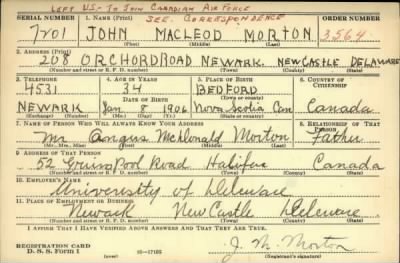 LEFT U.S.- TO JOIN CANADIAN AIR FORCE
SEE CORRESPONDENCE
SERIAL NUMBER 1. NAME (Print) ORDER NUMBER
7701 JOHN MACLEOD MORTON 3564
(First) (Middle) (Last)
2. ADDRESS (Print)
208 ORCHORD ROAD NEWARK. NEWCASTLE DELAWARE
(Number and street or R. F. D. number) (Town) (County) (State)
3. TELEPHONE 4. AGE IN YEARS 5. PLACE OF BIRTH 6. COUNTRY OF CITIZENSHIP
4531 34 BEDFORD
DATE OF BIRTH (Town or county)
NEWARK Jan 8 1906 Nova Scotia Can Canada
(Exchange) (Mo.) (Day) (Yr.) (State or country)
7. NAME OF PERSON WHO WILL ALWAYS KNOW YOUR ADDRESS 8. RELATIONSHIP OF THAT PERSON
Mr. Angus McDonald Morton Father
(Mr., Mrs., Miss) (First) (Middle) (Last)
9. ADDRESS OF THAT PERSON
52 Pool Road Halifax Canada
(Number and street or R. F. D. number) (Town) (County) (State)
10. EMPLOYER'S NAME
University of Delaware
11. PLACE OF EMPLOYMENT OR BUSINESS
Newark New Castle Delaware
(Number and street or R. F. D. number) (Town) (County) (State)
I AFFIRM THAT I HAVE VERIFIED ABOVE ANSWERS AND THAT THEY ARE TRUE.
REGISTRATION CARD
D. S. S. Form 1 (over) 16-17105 J. M. Morton
(Registrant's signature)